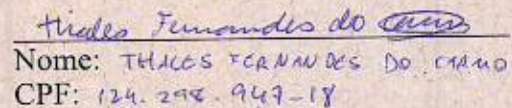 Thales Fernandes do
Nome: THALES FERNANDES DO
CPF: 124.298.947-18